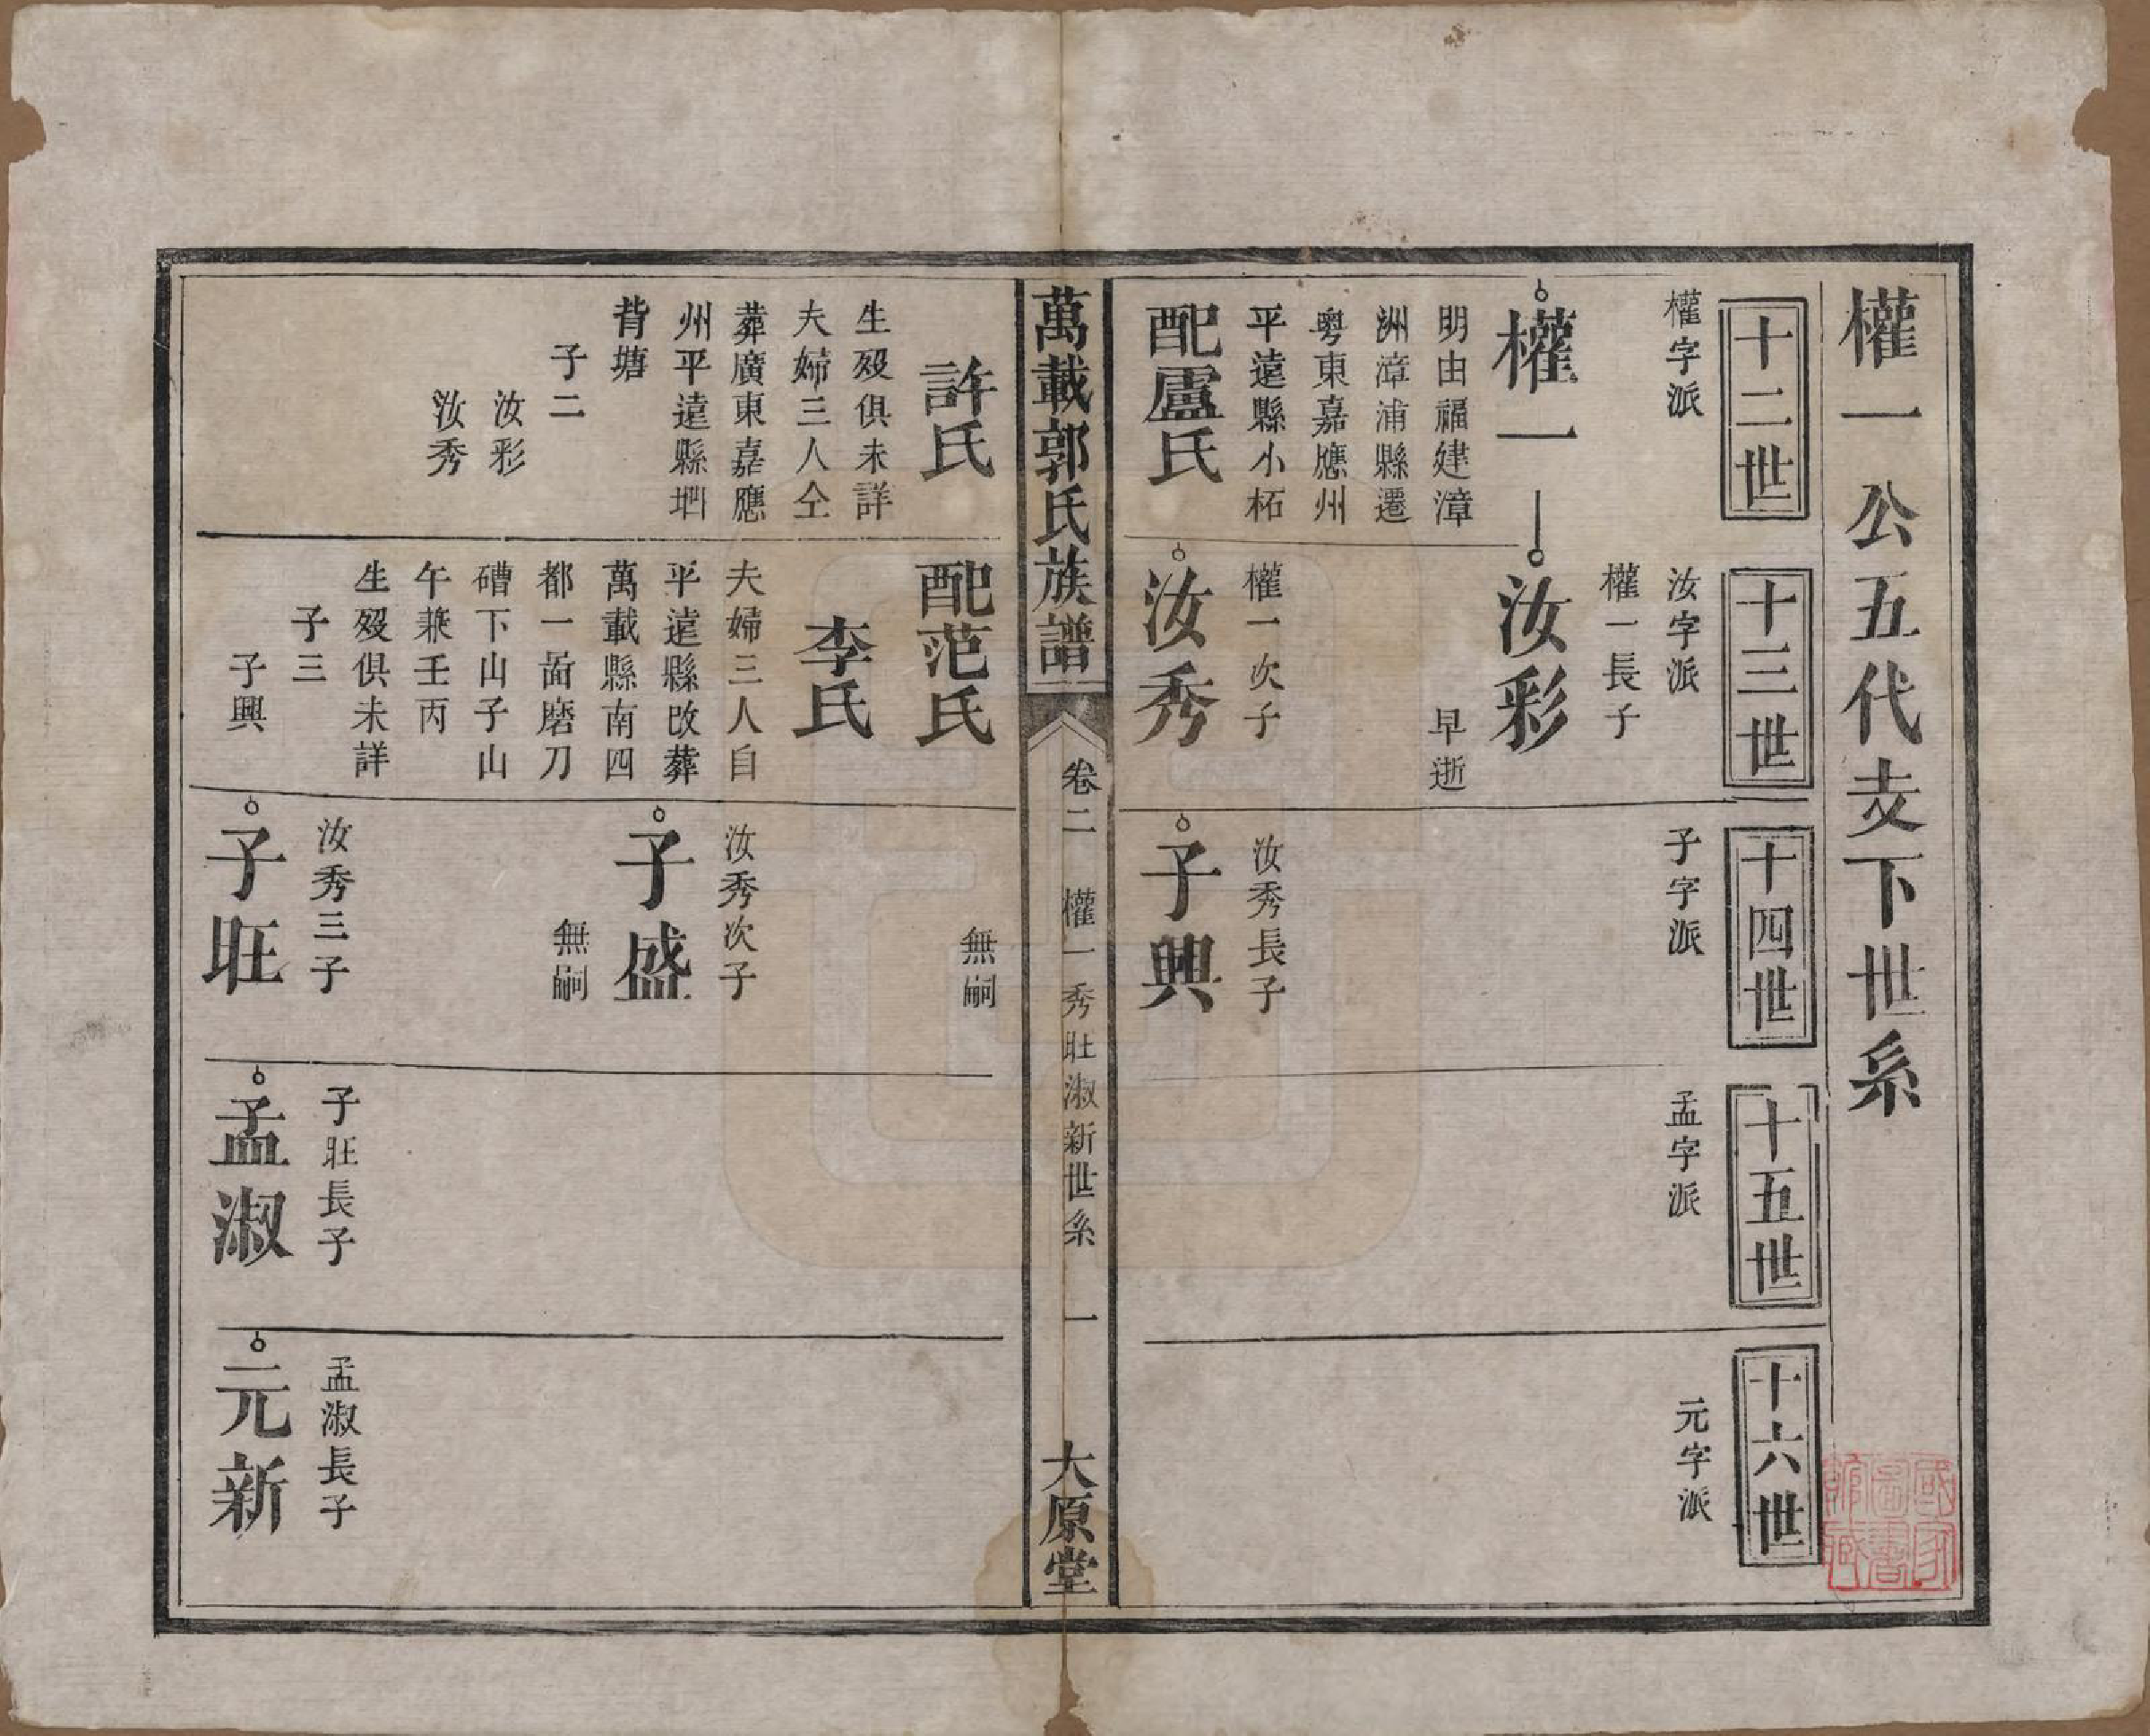 權一公五代支下世系
十二世
權字派
權一
明由福建漳
洲漳浦縣遷
粵東嘉應州
平遠縣小柘
配盧氏
十三世
汝字派
權一長子
汝彩
早逝
權一次子
汝秀
十四世
子字派
汝秀長子
子興
十五世
孟字派
十六世
元字派
萬載郭氏族譜
卷二
權一秀旺淑新世系
一
大原堂
許氏
生歿俱未詳
夫婦三人仝
葬廣東嘉應
州平遠縣
背塘
子二
汝彩
汝秀
配范氏
李氏
夫婦三人自
平遠縣改葬
萬載縣南四
都一啚磨刀
磳下山子山
午兼壬丙
生歿俱未詳
子三
子興
無嗣
汝秀次子
子盛
無嗣
汝秀三子
子旺
子旺長子
孟淑
孟淑長子
元新
國家
圖書
館藏